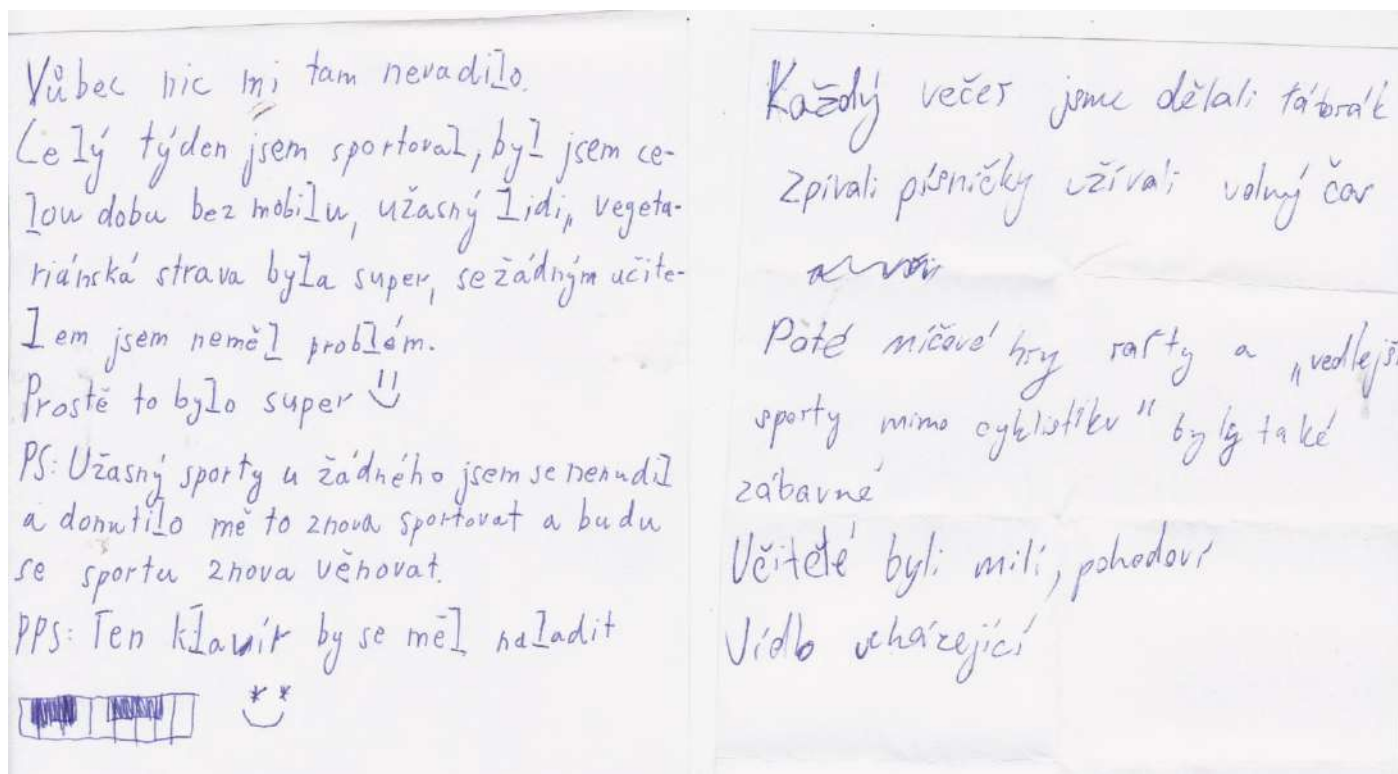 Vůbec nic mi tam nevadilo.
Celý týden jsem sportoval, byl jsem ce-
lou dobu bez mobilu, užasný lidi,, vegeta-
riánská strava byla super, se žádným učite-
lem jsem neměl problém.
Prostě to bylo super
PS: Užasný sporty u žádného jsem se nenudil
a donutilo mě to znova sportovat a budu
se sportu znova věnovat.
PPS: Ten klavír by se měl naladit
Každý večer jsme dělali táborák
zpívali písničky užívali volný čas
Poté míčové hry rafty a „vedlejší
sporty mimo cyklistiku" byly také
zábavné
Učitelé byli milí, pohodoví
Jídlo ucházející